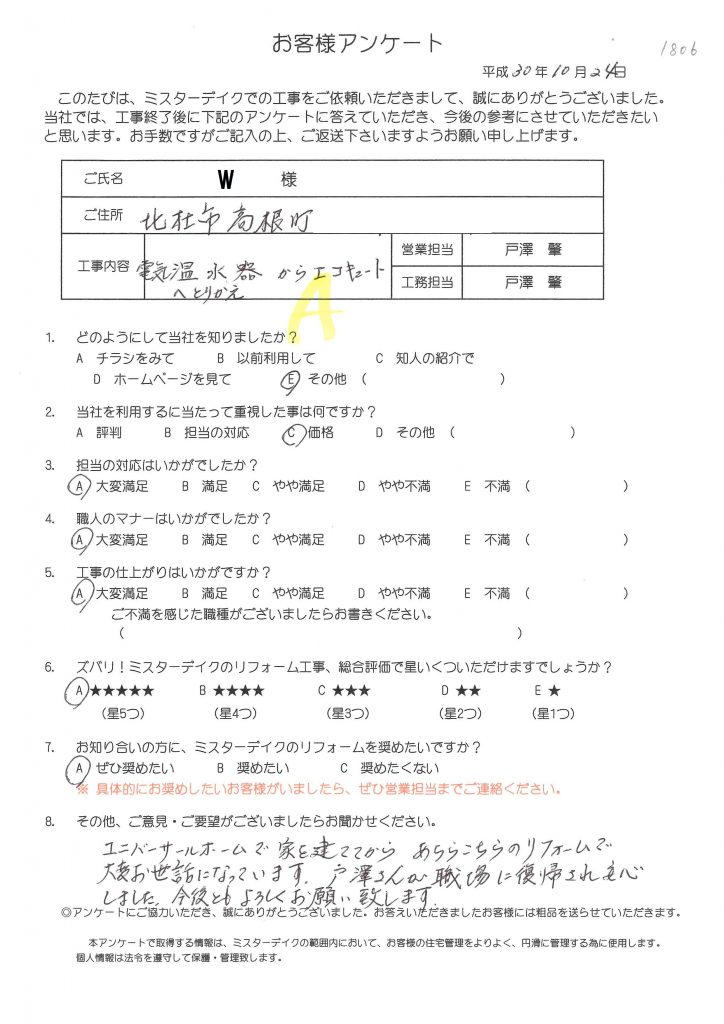 お客様アンケート
1806
平成30年10月24日
このたびは、ミスターデイクでの工事をご依頼いただきまして、誠にありがとうございました。
当社では、工事終了後に下記のアンケートに答えていただき、今後の参考にさせていただきたい
と思います。お手数ですがご記入の上、ご返送下さいますようお願い申し上げます。
ご氏名 W 様
ご住所 北杜市高根町
工事内容 電気温水器からエコキュート
へとりかえ
営業担当 戸澤 肇
工務担当 戸澤 肇
A
1. どのようにして当社を知りましたか？
A チラシをみて B 以前利用して C 知人の紹介で
D ホームページを見て E その他 ( )
2. 当社を利用するに当たって重視した事は何ですか？
A 評判 B 担当の対応 C 価格 D その他 ( )
3. 担当の対応はいかがでしたか？
A 大変満足 B 満足 C やや満足 D やや不満 E 不満 ( )
4. 職人のマナーはいかがでしたか？
A 大変満足 B 満足 C やや満足 D やや不満 E 不満 ( )
5. 工事の仕上がりはいかがですか？
A 大変満足 B 満足 C やや満足 D やや不満 E 不満 ( )
ご不満を感じた職種がございましたらお書きください。
( )
6. ズバリ！ミスターデイクのリフォーム工事、総合評価で星いくついただけますでしょうか？
A ★★★★★ B ★★★★ C ★★★ D ★★ E ★
(星5つ) (星4つ) (星3つ) (星2つ) (星1つ)
7. お知り合いの方に、ミスターデイクのリフォームを奨めたいですか？
A ぜひ奨めたい B 奨めたい C 奨めたくない
※ 具体的にお奨めしたいお客様がいましたら、ぜひ営業担当までご連絡ください。
8. その他、ご意見・ご要望がございましたらお聞かせください。
ユニバーサルホームで家を建ててから あちらこちらのリフォームで
大変お世話になっています。戸澤さんが職場に復帰され安心
しました。今後ともよろしくお願い致します。
◎アンケートにご協力いただき、誠にありがとうございました。お答えいただきましたお客様には粗品を送らせていただきます。
本アンケートで取得する情報は、ミスターデイクの範囲内において、お客様の住宅管理をよりよく、円滑に管理する為に使用します。
個人情報は法令を遵守して保護・管理致します。